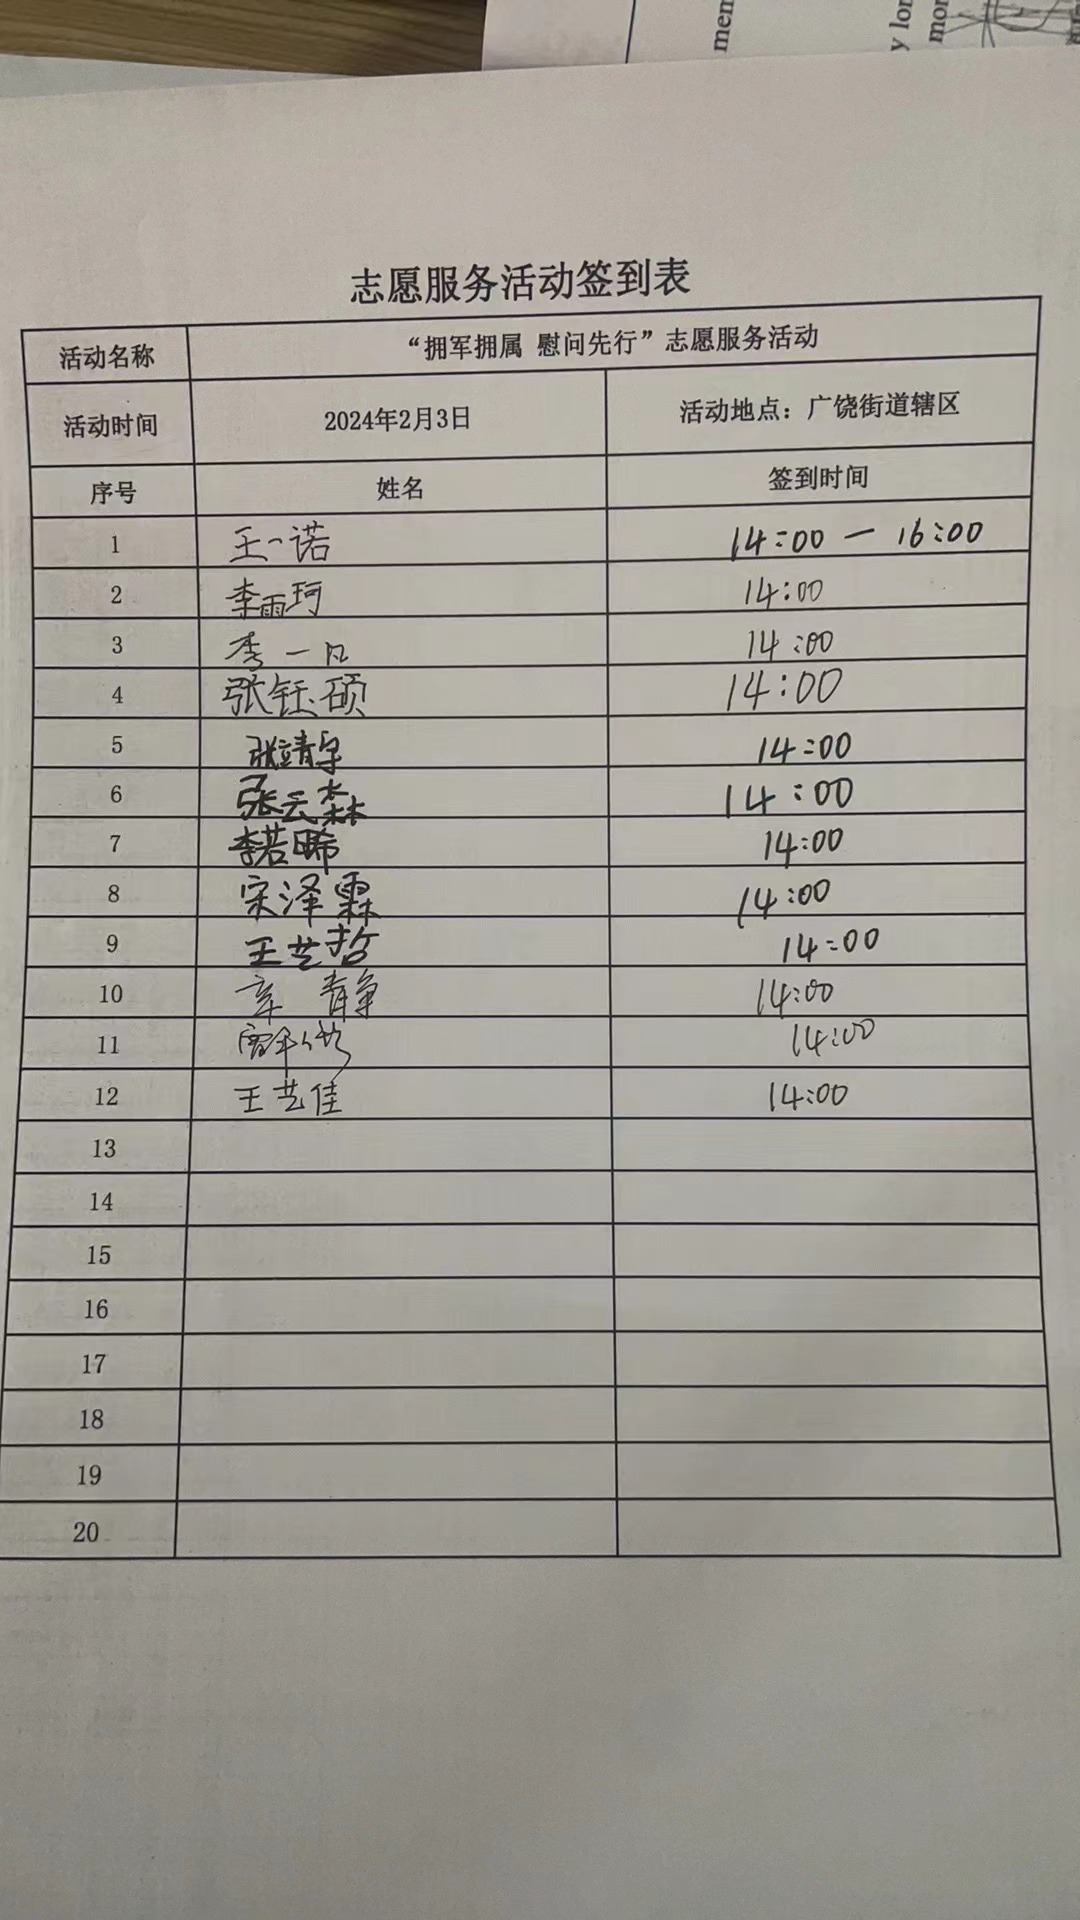 men
y lor
mor
志愿服务活动签到表
活动名称 “拥军拥属 慰问先行”志愿服务活动
活动时间 2024年2月3日 活动地点：广饶街道辖区
序号 姓名 签到时间
1 王一诺 14:00 — 16:00
2 李雨珂 14:00
3 李一凡 14:00
4 张钰硕 14:00
5 张靖宇 14:00
6 张云森 14:00
7 李若晞 14:00
8 宋泽霖 14:00
9 王艺哲 14:00
10 章静 14:00
11 14:00
12 王艺佳 14:00
13
14
15
16
17
18
19
20